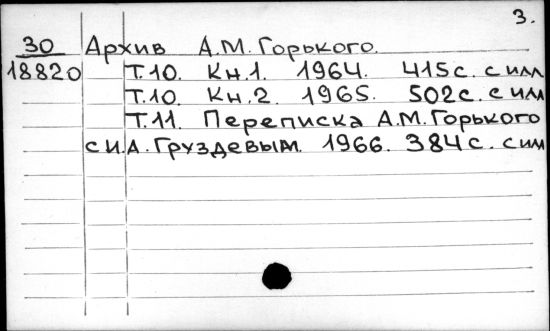 3.
30 Архив А.М. Горького.
18820 Т.10. Кн.1. 1964. 415с. с илл
Т.10. Кн.2. 1965. 502с. с илл
Т.11. Переписка А.М. Горького
с И.А. Груздевым. 1966. 384с. с илл